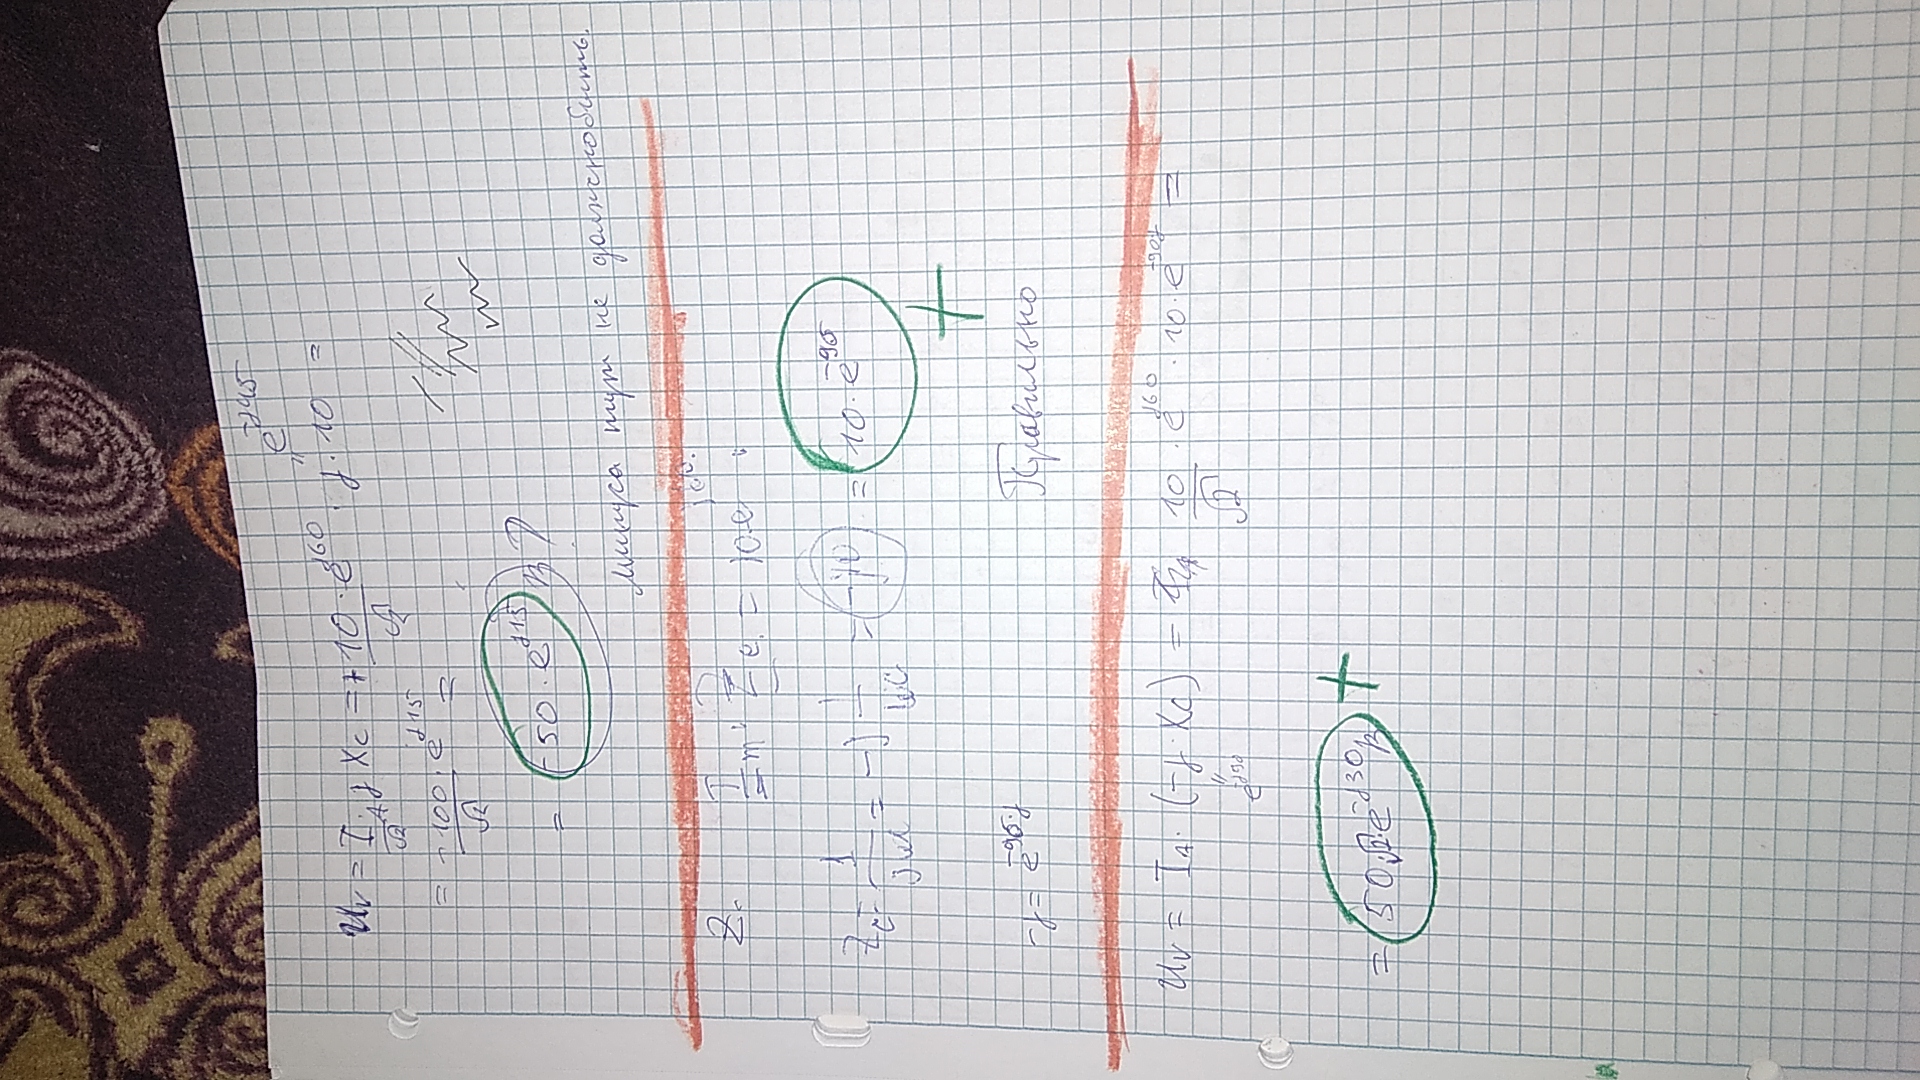 e^-j45
U_V = I_A/√2 · j X_C = + 10/√2 · e^j60 · j · 10 =
= -100/√2 · e^j15 =
= -50 · e^j15 В ?
минуса тут не должно быть.
Z_c I_m · Z_c = 10 · e
Z_c = 1/jωC = -j 1/ωC = -j10 = 10 · e^-90
+
-j = e^-90·j Правильно
U_V = I_A · (-j · X_C) = 10/√2 · e^j60 · 10 · e^-90j =
e^-j90
= 50 √2 · e^-j30 В +